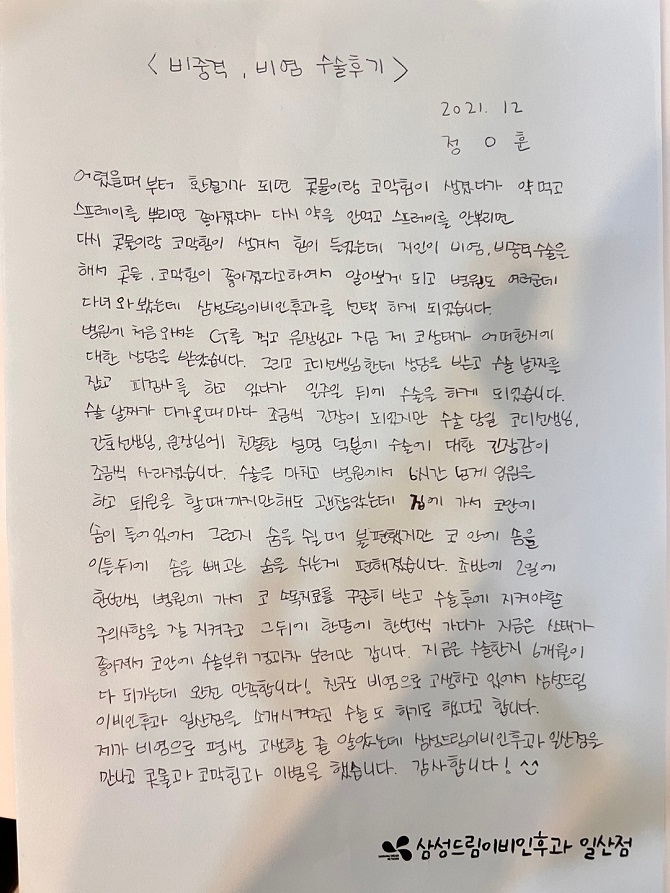 < 비중격, 비염 수술후기 >
2021. 12
정 O 훈
어렸을때 부터 환절기가 되면 콧물이랑 코막힘이 생겼다가 약 먹고
스프레이를 뿌리면 좋아졌다가 다시 약을 안먹고 스프레이를 안뿌리면
다시 콧물이랑 코막힘이 생겨서 힘이 들었는데 지인이 비염, 비중격수술을
해서 콧물, 코막힘이 좋아졌다고하여서 알아보게 되고 병원도 여러군데
다녀 와 봤는데 삼성드림이비인후과를 선택 하게 되었습니다.
병원에 처음 와서는 CT를 찍고 원장님과 지금 제 코상태가 어떠한지에
대한 상담을 받았습니다. 그리고 코디선생님한테 상담을 받고 수술 날짜를
잡고 피검사를 하고 있다가 일주일 뒤에 수술을 하게 되었습니다.
수술 날짜가 다가올때 마다 조금씩 긴장이 되었지만 수술 당일 코디선생님,
간호선생님, 원장님에 친절한 설명 덕분에 수술에 대한 긴장감이
조금씩 사라졌습니다. 수술을 마치고 병원에서 6시간 넘게 입원을
하고 퇴원을 할때 까지만해도 괜찮았는데 집에 가서 코안에
솜이 들어있어서 그런지 숨을 쉴 때 불편했지만 코 안에 솜을
이틀뒤에 솜을 빼고는 숨을 쉬는게 편해졌습니다. 초반에 2일에
한번씩 병원에 가서 코 소독치료를 꾸준히 받고 수술후에 지켜야할
주의사항을 잘 지켜주고 그뒤에 한달에 한번씩 가다가 지금은 상태가
좋아져서 코안에 수술부위 경과차 보러만 갑니다. 지금은 수술한지 6개월이
다 되가는데 완전 만족합니다! 친구도 비염으로 고생하고 있어서 삼성드림
이비인후과 일산점을 소개시켜주고 수술도 하기로 했다고 합니다.
제가 비염으로 평생 고생할 줄 알았는데 삼성드림이비인후과 일산점을
만나고 콧물과 코막힘과 이별을 했습니다. 감사합니다!
삼성드림이비인후과 일산점